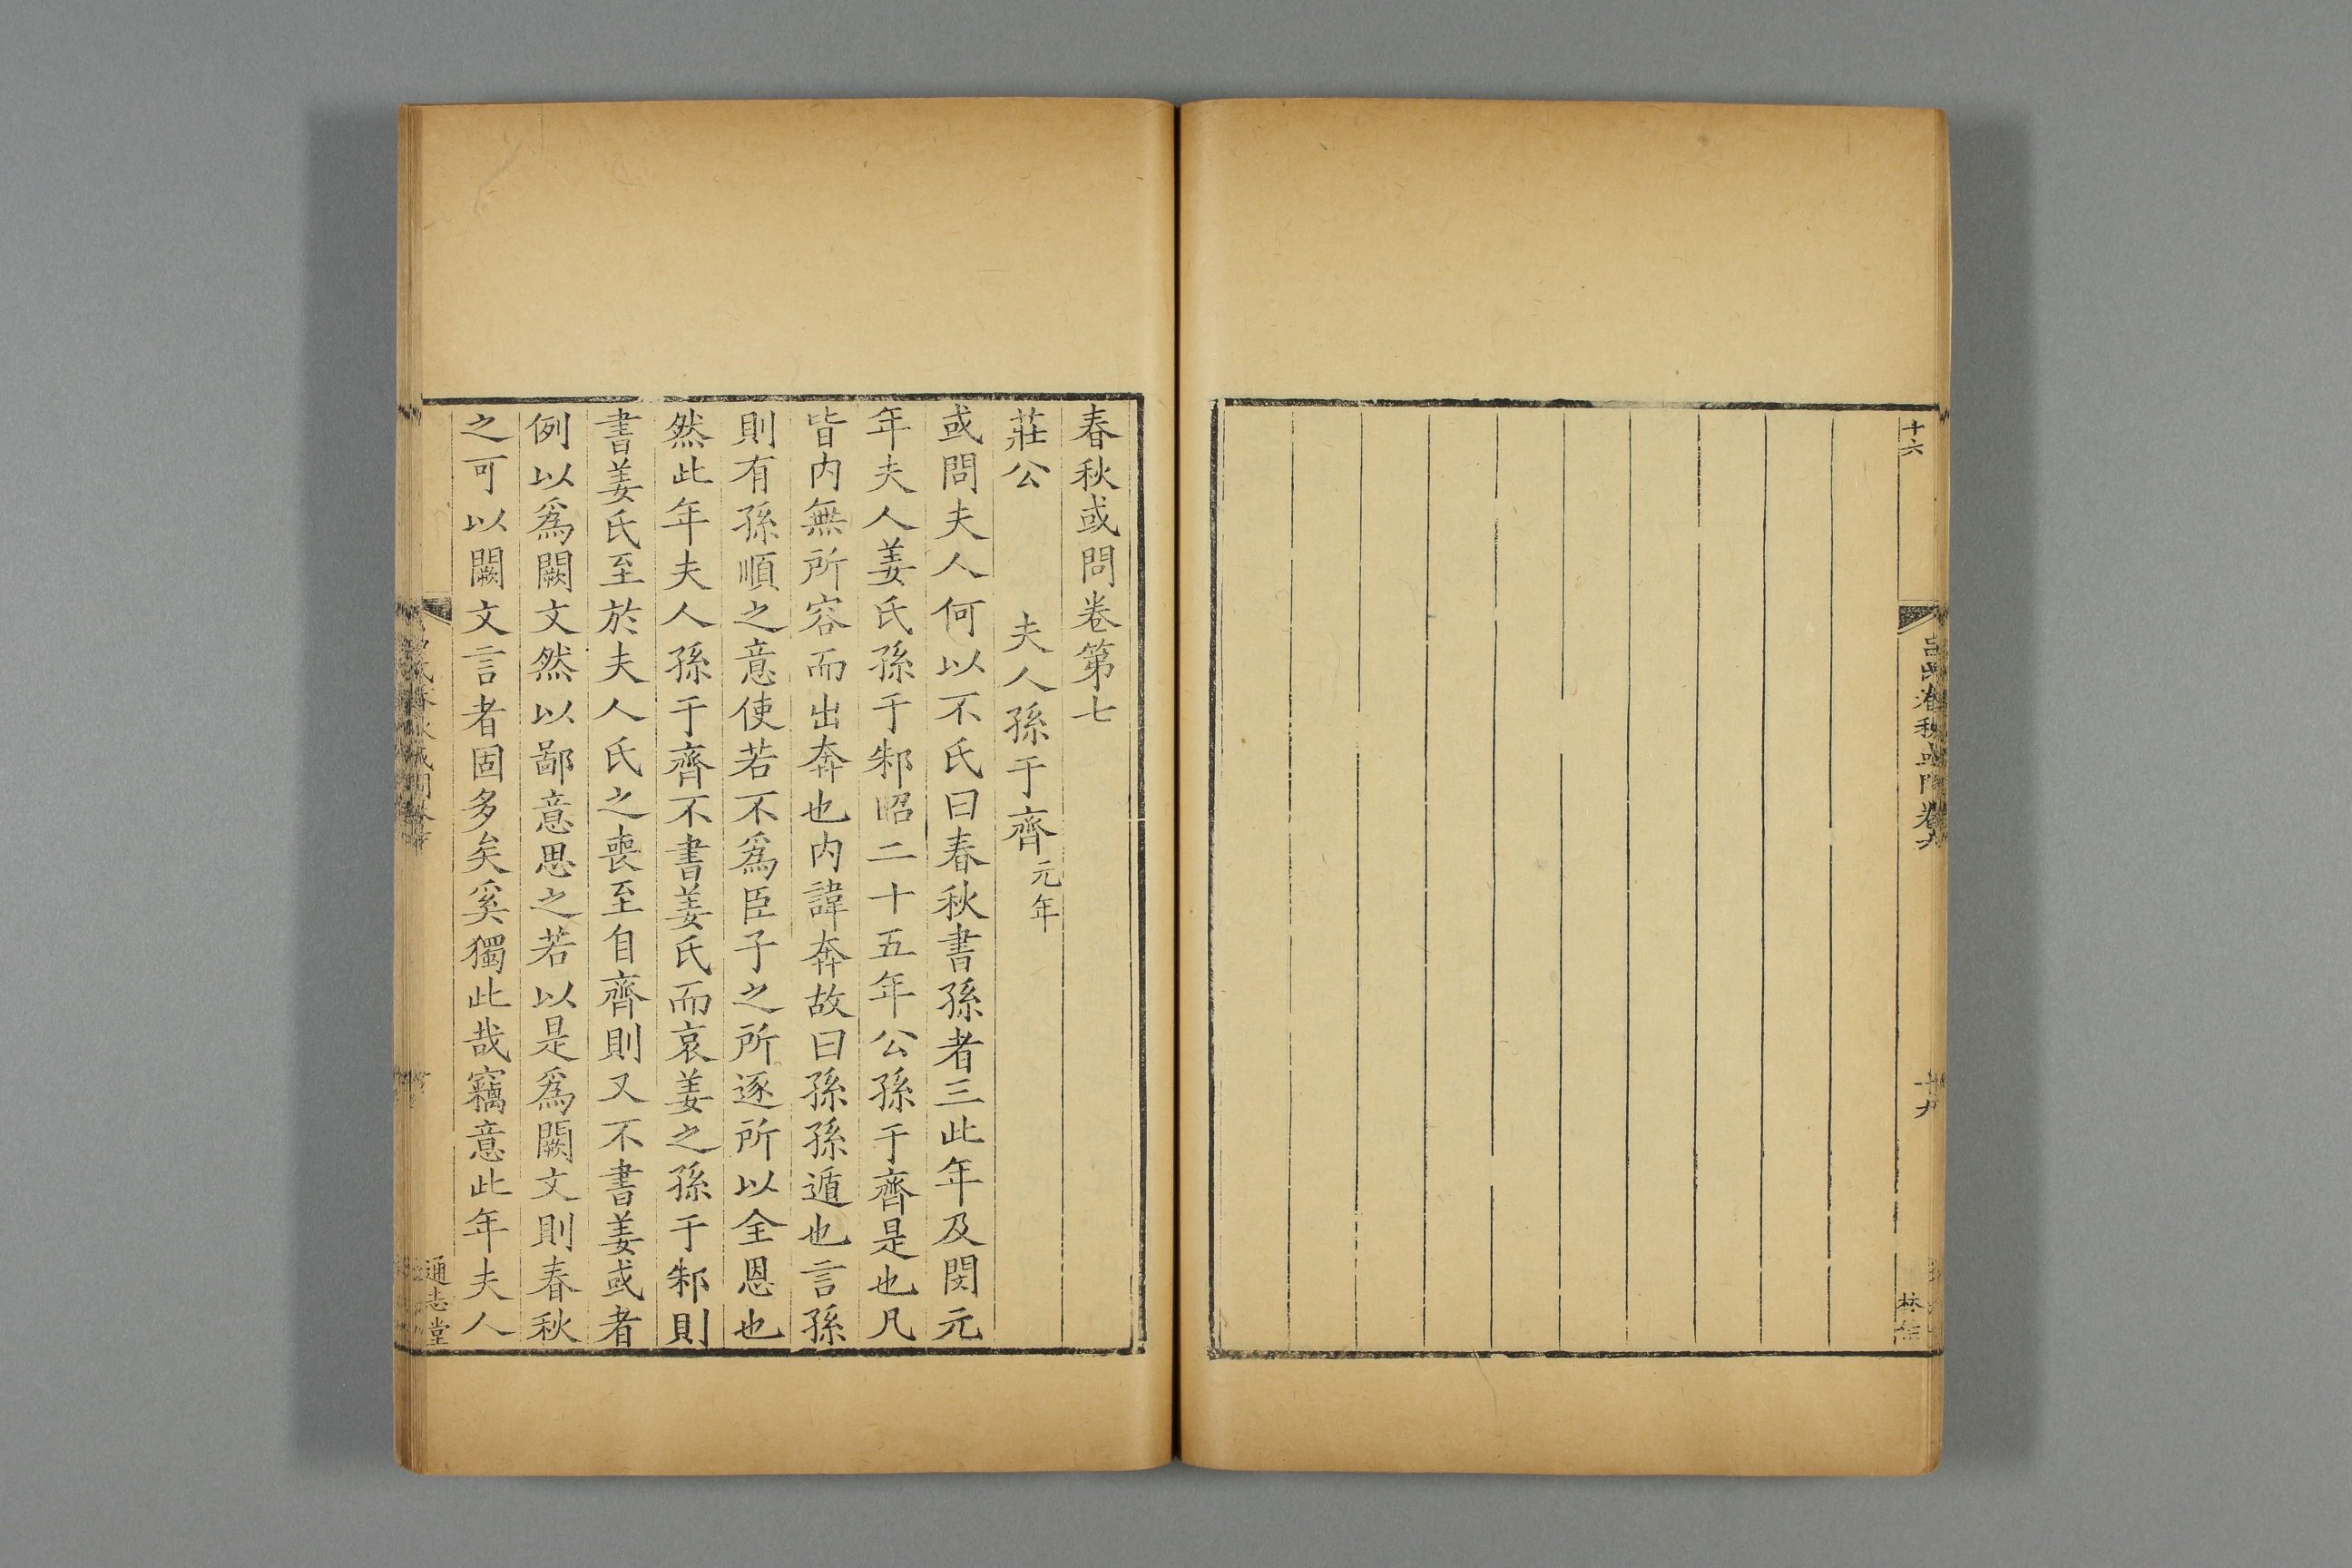 十六
呂氏春秋或問卷六
十九
春秋或問卷第七
莊公　夫人孫于齊元年
或問夫人何以不氏曰春秋書孫者三此年及閔元
年夫人姜氏孫于邾昭二十五年公孫于齊是也凡
皆内無所容而出奔也内諱奔故曰孫孫遁也言孫
則有孫順之意使若不爲臣子之所逐所以全恩也
然此年夫人孫于齊不書姜氏而哀姜之孫于邾則
書姜氏至於夫人氏之喪至自齊則又不書姜或者
例以爲闕文然以鄙意思之若以是爲闕文則春秋
之可以闕文言者固多矣奚獨此哉竊意此年夫人
通志堂